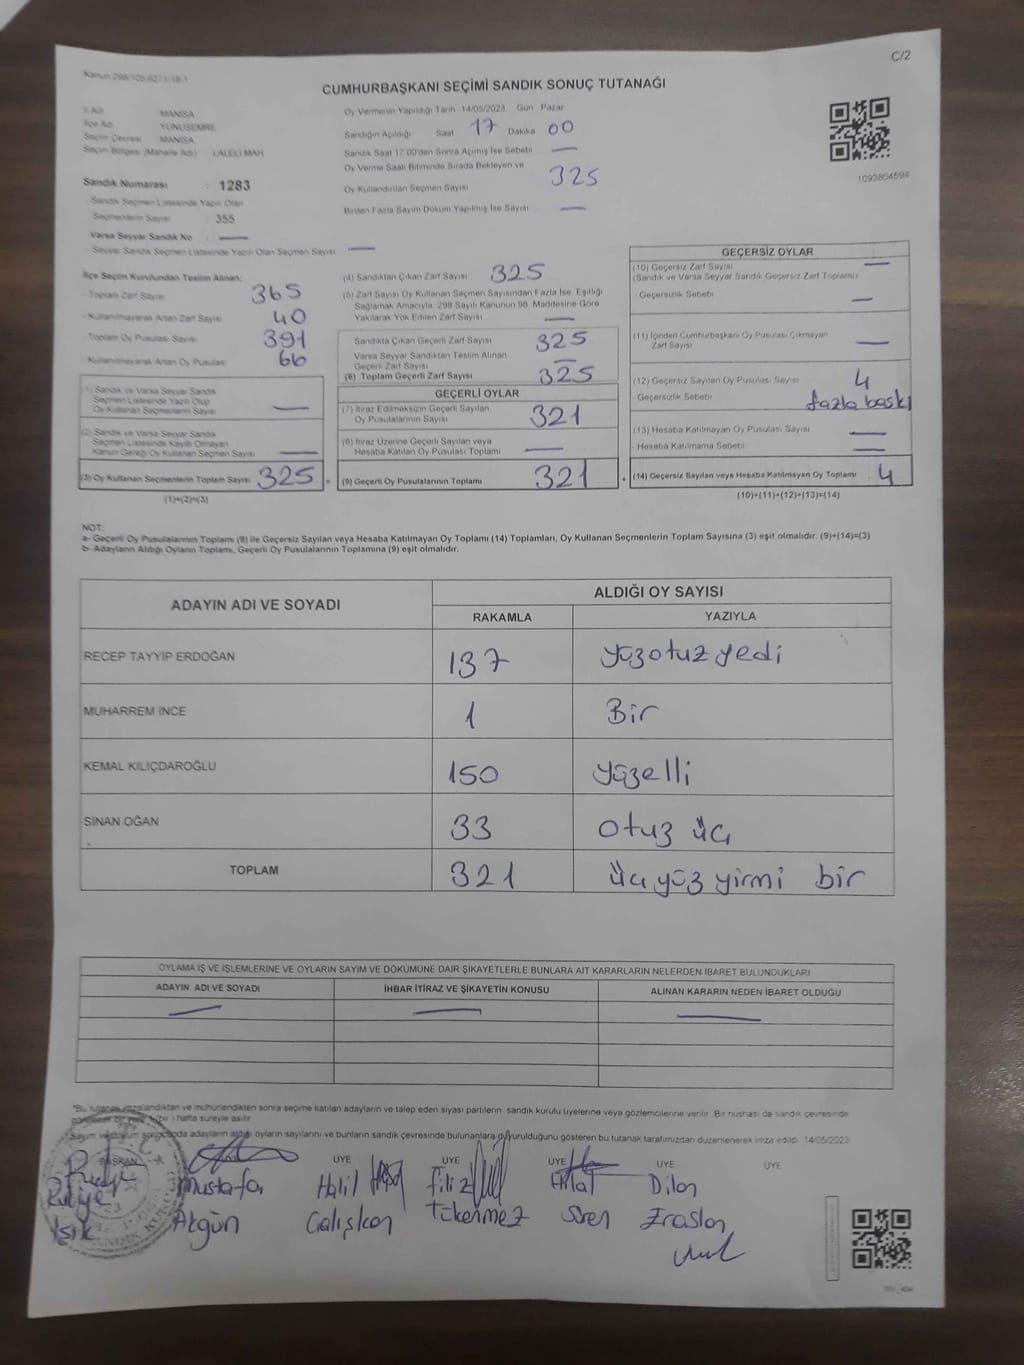 C/2
CUMHURBAŞKANI SEÇİMİ SANDIK SONUÇ TUTANAĞI
İl Adı MANİSA
İlçe Adı YUNUSEMRE
Seçim Çevresi MANİSA
Seçim Bölgesi (Mahalle Adı) LALELİ MAH
Sandık Numarası : 1283
Sandık Seçmen Listesinde Yazılı Olan
Seçmenlerin Sayısı 355
Varsa Seyyar Sandık No —
Seyyar Sandık Seçmen Listesinde Yazılı Olan Seçmen Sayısı —
Oy Vermenin Yapıldığı Tarih 14/05/2023 Gün Pazar
Sandığın Açıldığı Saat 17 Dakika 00
Sandık Saat 17:00'den Sonra Açılmış İse Sebebi —
Oy Verme Saati Bitiminde Sırada Bekleyen ve
Oy Kullandırılan Seçmen Sayısı 325
Birden Fazla Sayım Döküm Yapılmış İse Sayısı —
1093804694
İlçe Seçim Kurulundan Teslim Alınan:
- Toplam Zarf Sayısı 365
- Kullanılmayarak Artan Zarf Sayısı 40
- Toplam Oy Pusulası Sayısı 391
- Kullanılmayarak Artan Oy Pusulası 66
(1) Sandık ve Varsa Seyyar Sandık
Seçmen Listesinde Yazılı Olup
Oy Kullanan Seçmenlerin Sayısı —
(2) Sandık ve Varsa Seyyar Sandık
Seçmen Listesinde Kayıtlı Olmayan
Kanun Gereği Oy Kullanan Seçmen Sayısı —
(3) Oy Kullanan Seçmenlerin Toplam Sayısı 325 =
(1)+(2)=(3)
(4) Sandıktan Çıkan Zarf Sayısı 325
(5) Zarf Sayısı Oy Kullanan Seçmen Sayısından Fazla İse, Eşitliği
Sağlamak Amacıyla, 298 Sayılı Kanunun 98. Maddesine Göre
Yakılarak Yok Edilen Zarf Sayısı —
Sandıkta Çıkan Geçerli Zarf Sayısı 325
Varsa Seyyar Sandıktan Teslim Alınan
Geçerli Zarf Sayısı —
(6) Toplam Geçerli Zarf Sayısı 325
GEÇERLİ OYLAR
(7) İtiraz Edilmeksizin Geçerli Sayılan
Oy Pusulalarının Sayısı 321
(8) İtiraz Üzerine Geçerli Sayılan veya
Hesaba Katılan Oy Pusulası Toplamı —
(9) Geçerli Oy Pusulalarının Toplamı 321 +
GEÇERSİZ OYLAR
(10) Geçersiz Zarf Sayısı —
(Sandık ve Varsa Seyyar Sandık Geçersiz Zarf Toplamı)
- Geçersizlik Sebebi —
(11) İçinden Cumhurbaşkanı Oy Pusulası Çıkmayan
Zarf Sayısı —
(12) Geçersiz Sayılan Oy Pusulası Sayısı 4
- Geçersizlik Sebebi fazla baskı
(13) Hesaba Katılmayan Oy Pusulası Sayısı —
- Hesaba Katılmama Sebebi —
(14) Geçersiz Sayılan veya Hesaba Katılmayan Oy Toplamı 4
(10)+(11)+(12)+(13)=(14)
NOT:
a- Geçerli Oy Pusulalarının Toplamı (9) ile Geçersiz Sayılan veya Hesaba Katılmayan Oy Toplamı (14) Toplamları, Oy Kullanan Seçmenlerin Toplam Sayısına (3) eşit olmalıdır. (9)+(14)=(3)
b- Adayların Aldığı Oyların Toplamı, Geçerli Oy Pusulalarının Toplamına (9) eşit olmalıdır.
ADAYIN ADI VE SOYADI ALDIĞI OY SAYISI
RAKAMLA YAZIYLA
RECEP TAYYİP ERDOĞAN 137 yüzotuzyedi
MUHARREM İNCE 1 Bir
KEMAL KILIÇDAROĞLU 150 yüzelli
SİNAN OĞAN 33 otuz üç
TOPLAM 321 üçyüz yirmi bir
OYLAMA İŞ VE İŞLEMLERİNE VE OYLARIN SAYIM VE DÖKÜMÜNE DAİR ŞİKAYETLERLE BUNLARA AİT KARARLARIN NELERDEN İBARET BULUNDUKLARI
ADAYIN ADI VE SOYADI İHBAR İTİRAZ VE ŞİKAYETİN KONUSU ALINAN KARARIN NEDEN İBARET OLDUĞU
— — —
"Bu tutanak imzalandıktan ve mühürlendikten sonra seçime katılan adayların ve talep eden siyasi partilerin sandık kurulu üyelerine veya gözlemcilerine verilir. Bir nüshası da sandık çevresinde
hafta süreyle asılır.
Sayım ve döküm sonucunda adayların aldığı oyların sayılarını ve bunların sandık çevresinde bulunanlara duyurulduğunu gösteren bu tutanak tarafımızdan düzenlenerek imza edildi. 14/05/2023
BAŞKAN ÜYE ÜYE ÜYE ÜYE ÜYE
Mustafa Halil Filiz Dilan
Işık Akgün Çalışkan Tükenmez Eraslan